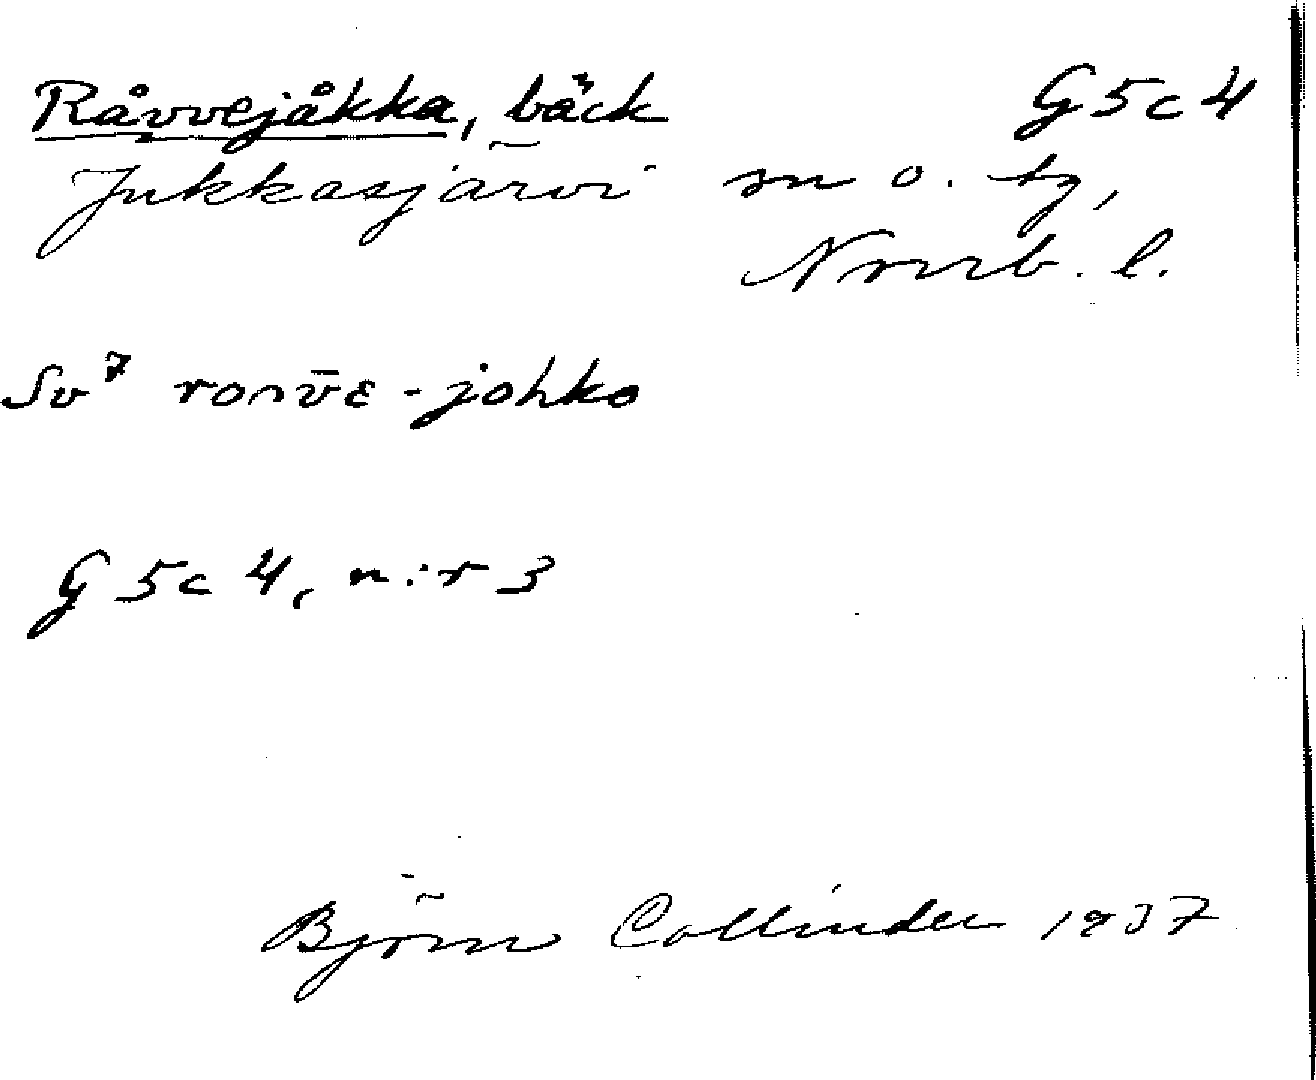 Råvvejåkka, bäck G5c4
Jukkasjärvi sn o. tg,
Norrb. l.
Sv⁷ ronv̄ɛ-johko
G5c4, n:r 3
Björn Collinder 1937